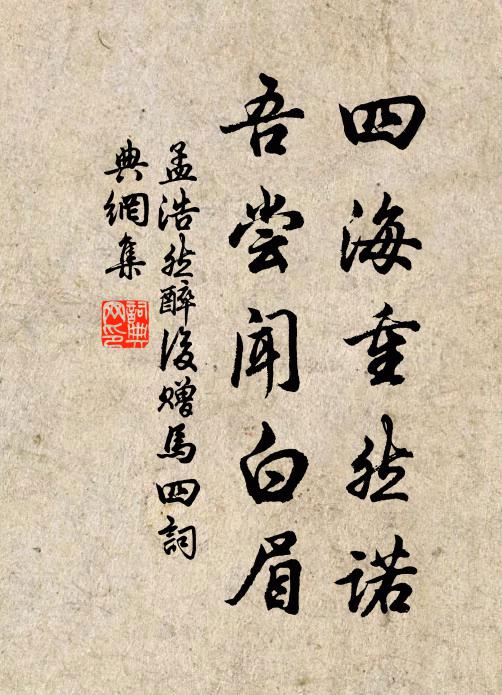 四海重然诺
吾尝闻白眉
孟浩然醉後赠馬四詞
典網集
詞典
网印